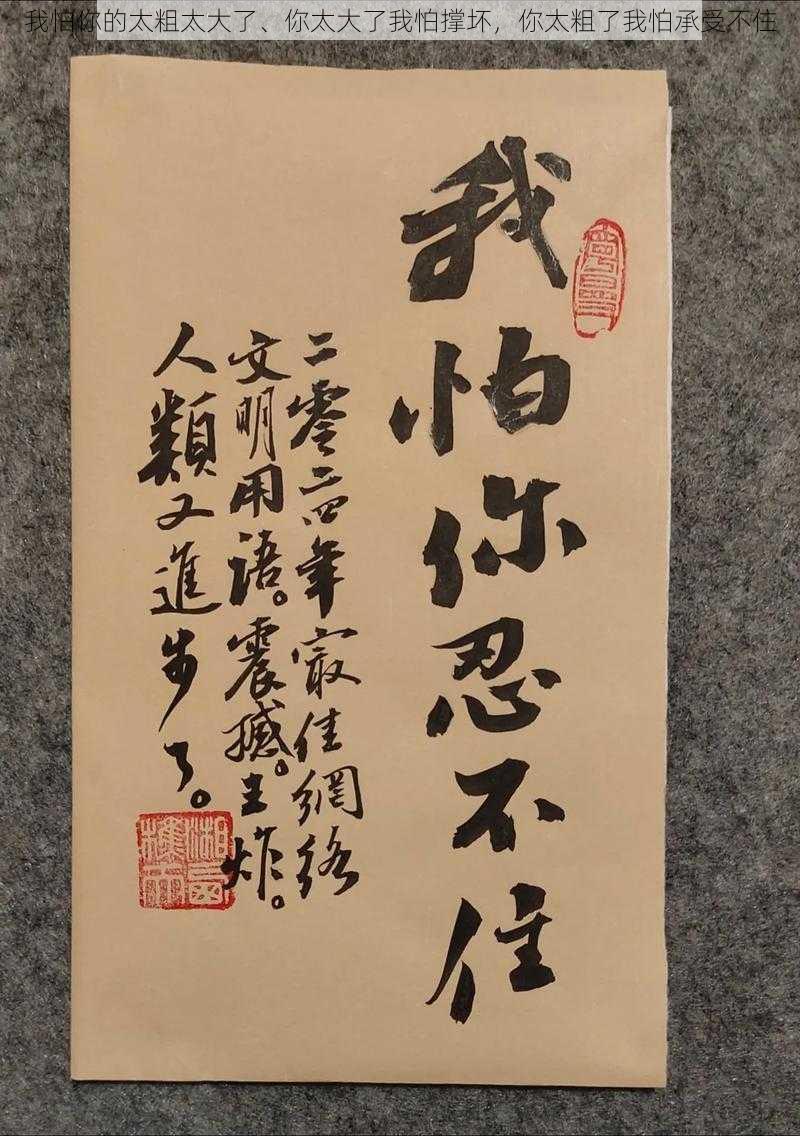 我怕你的太粗太大了、你太大了我怕撑坏，你太粗了我怕承受不住
我怕你忍不住
二零二四年最佳網络
文明用语。震撼。王炸。
人類又進步了。